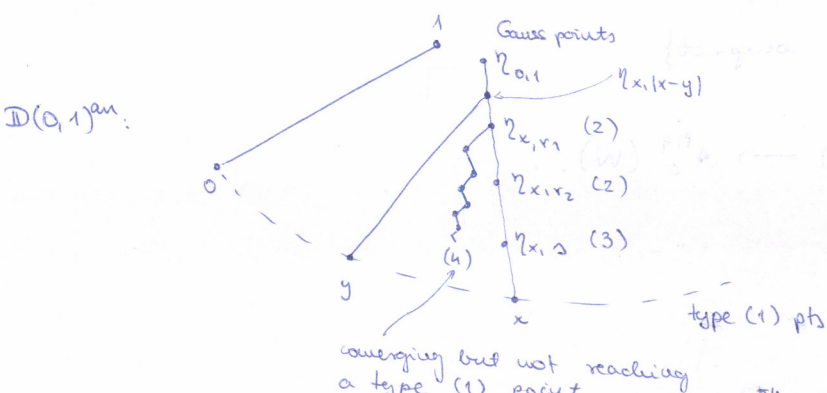 1
Gauss points
η₀,₁
ηx,|x-y|
𝔻(0,1)^an:
ηx,r₁ (2)
0
ηx,r₂ (2)
ηx,s (3)
(4)
y
x
type (1) pts
converging but not reaching
a type (1) point